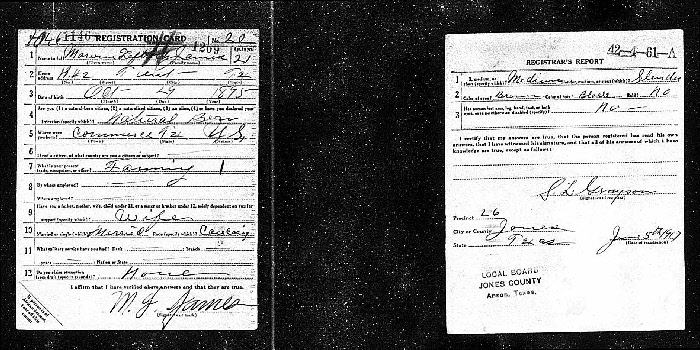 1146
REGISTRATION CARD
No. 20
1209
1 Name in full Marvin
Age, in yrs. 21
2 Home address
Tex
3 Date of birth Oct 29 1895
4 Are you (1) a natural-born citizen, (2) a naturalized citizen, (3) an alien, (4) or have you declared your intention (specify which)? Natural Born
5 Where were you born? Commerce Tex US
6 If not a citizen, of what country are you a citizen or subject?
7 What is your present trade, occupation, or office? Farming
8 By whom employed?
Where employed?
9 Have you a father, mother, wife, child under 12, or a sister or brother under 12, solely dependent on you for support (specify which)? Wife
10 Married or single (which)? Married Race (specify which)?
11 What military service have you had? Rank ; branch
years ; Nation or State
12 Do you claim exemption from draft (specify grounds)? None
I affirm that I have verified above answers and that they are true.
M. J. James
(Signature or mark)
42-4-61-A
REGISTRAR'S REPORT
1 Tall, medium, or short (specify which)? Medium Slender, medium, or stout (which)? Slender
2 Color of eyes? Brown Color of hair? Black Bald? No
3 Has person lost arm, leg, hand, foot, or both eyes, or is he otherwise disabled (specify)? No
I certify that my answers are true, that the person registered has read his own answers, that I have witnessed his signature, and that all of his answers of which I have knowledge are true, except as follows:
S L Grayson
(Signature of registrar)
Precinct 26
City or County Jones
State Texas
June 5th 1917
(Date of registration)
LOCAL BOARD
JONES COUNTY
Anson, Texas.